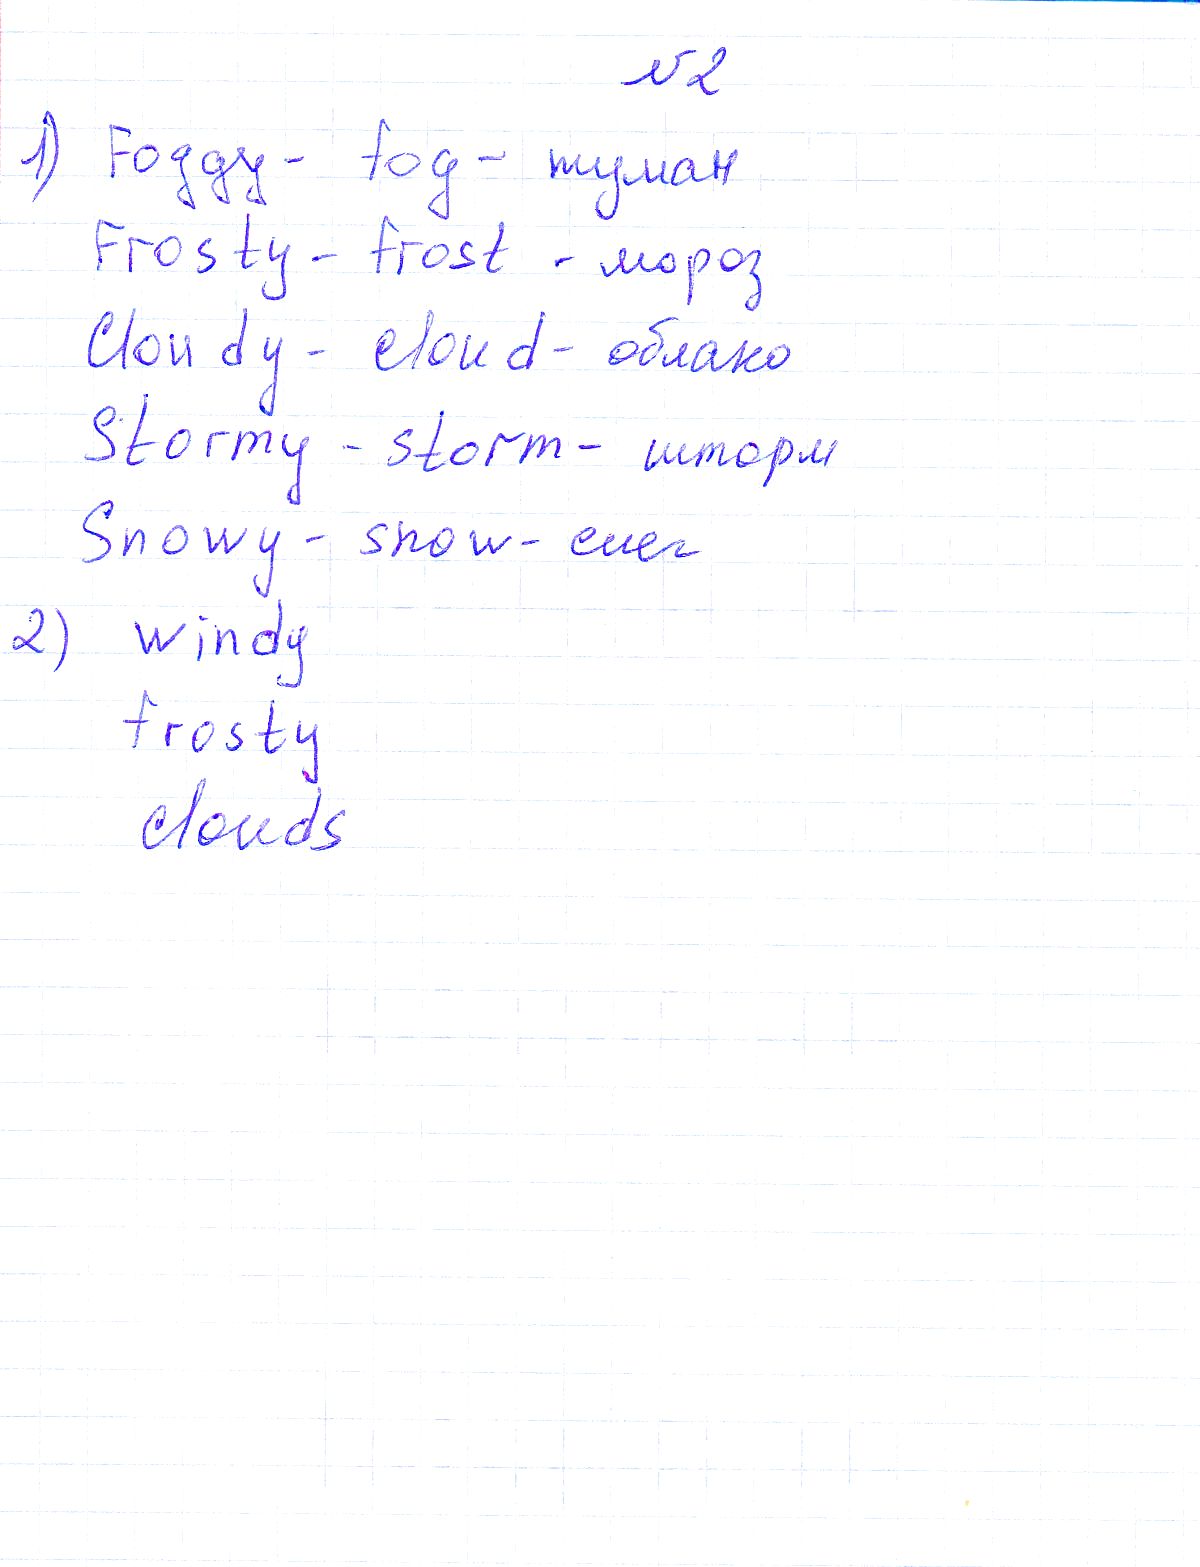 №2
1) Foggy - fog - туман
Frosty - frost - мороз
Cloudy - cloud - облако
Stormy - storm - шторм
Snowy - snow - снег
2) windy
frosty
clouds